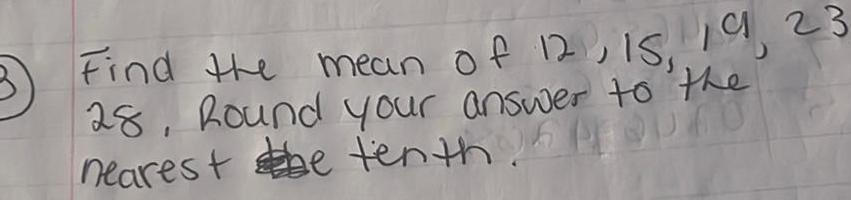 3) Find the mean of 12, 15, 19, 23
28. Round your answer to the
nearest the tenth.